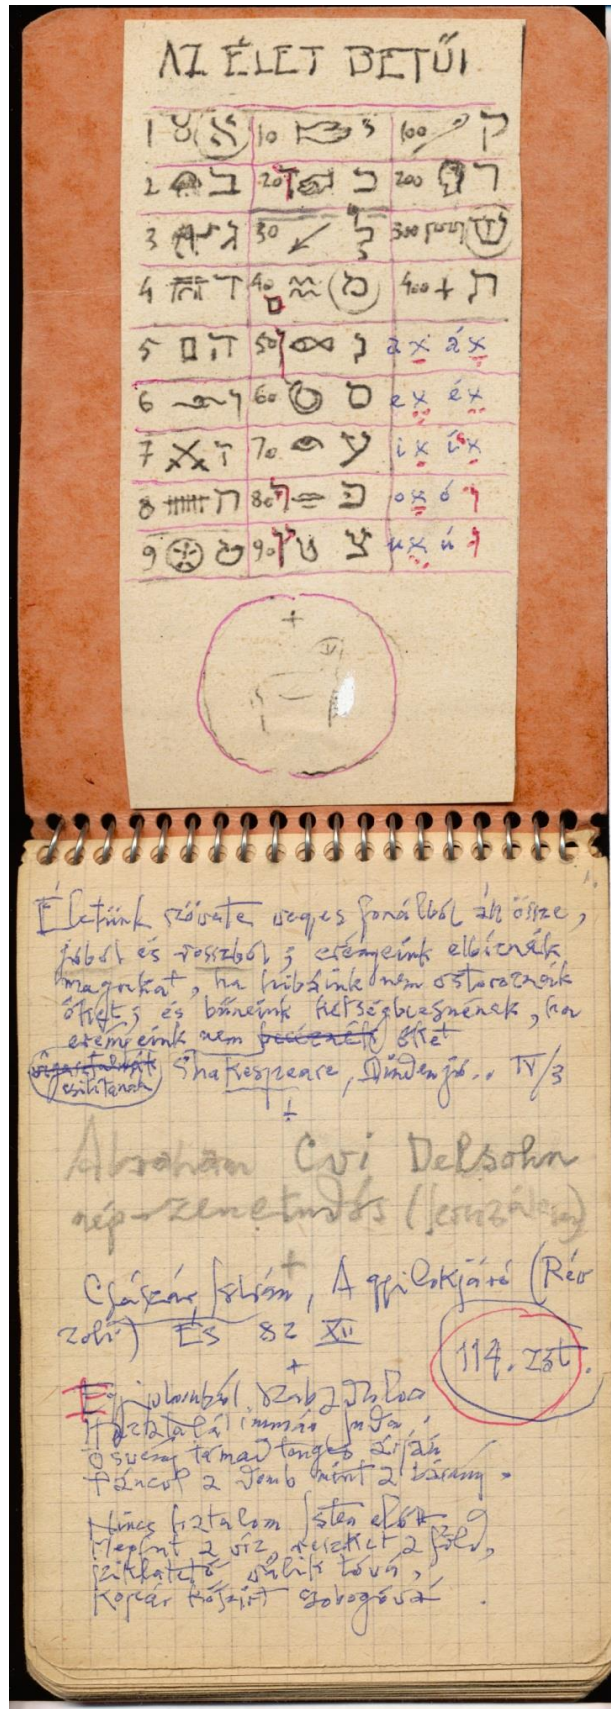 AZ ÉLET BETŰI
1 א 10 י 100 ק
2 ב 20 ך כ 200 ר
3 ג 30 ל 300 ש
4 ד 40 ם מ 400 ת
5 ה 50 ן נ a x á x
6 ו 60 ס e x é x
7 ז 70 ע i x í x
8 ח 80 ף פ o x ó ו
9 ט 90 ץ צ u x ú ו
Életünk szövete vegyes fonálból áll össze,
jóból és rosszból; erényeink elbíznák
magukat, ha hibáink nem ostoroznák
őket; és bűneink kétségbeesnének, ha
erényeink nem becéznék őket
vigasztalnák
csitítanák
Shakespeare, Minden jó.. IV/3
Abraham Cvi Delsohn
nép-zenetudós (Jeruzsálem)
Császár István, A gyilokjáró (Rév
zoli) ÉS 82 XII
114. zst.
Egyiptomból szabadulva
Háztalál immár Juda,
ösvény támad tenger árján
táncol a domb mint a bárány.
Nincs hatalom Isten előtt
Megfut a víz, reszket a föld,
sziklatető válik tóvá,
kopár kőszirt zubogóvá.